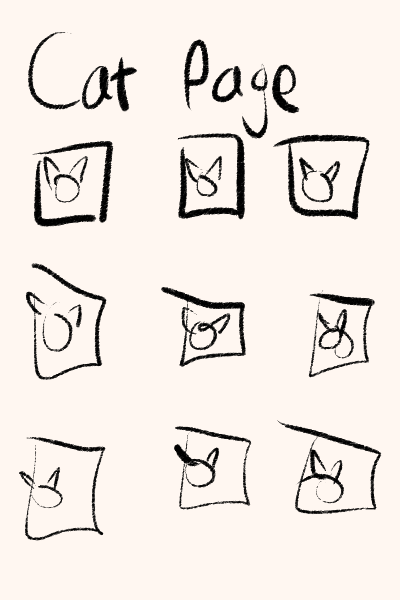 Cat Page